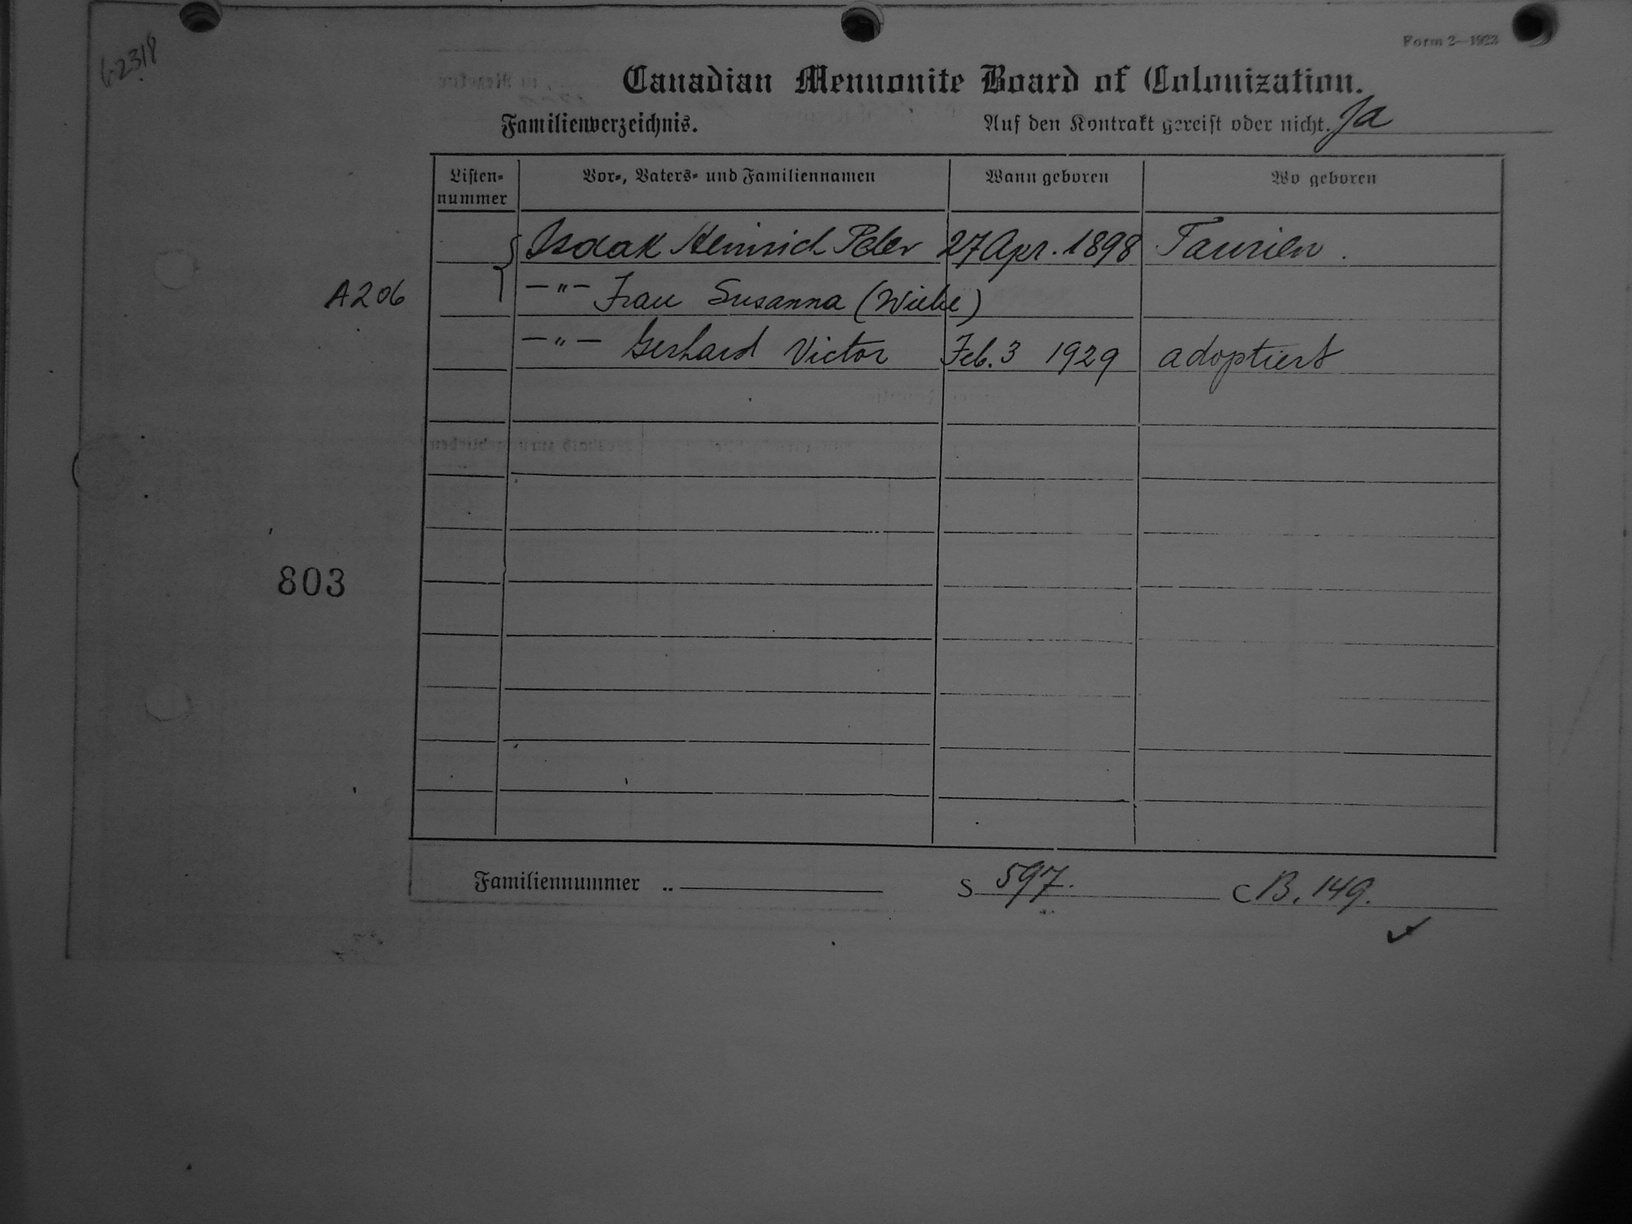 6-2318
Form 2—1923
Canadian Mennonite Board of Colonization.
Familienverzeichnis. Auf den Kontrakt gereist oder nicht. Ja
Listen-nummer Vor-, Vaters- und Familiennamen Wann geboren Wo geboren
Isaak Heinrich Peter 27 Apr. 1898 Taurien.
A206 —"— Frau Susanna (Wiebe)
—"— Gerhard Victor Feb. 3 1929 adoptiert
803
Familiennummer .. S 597. C B. 149.